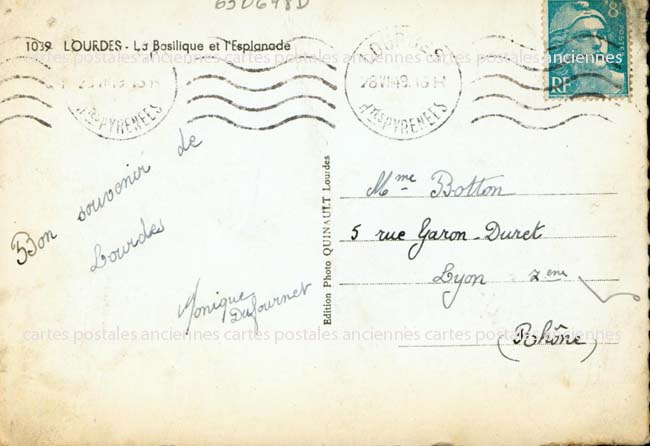 1039 LOURDES - La Basilique et l'Esplanade
LOURDES
28 VI 49 15 H
Htes PYRENEES
RF
Bon souvenir de
Lourdes
Monique
Dufournet
Edition Photo QUINAULT Lourdes
Mme Botton
5 rue Garon-Duret
Lyon 7eme
(Rhône)
cartes postales anciennes cartes postales anciennes cartes postales anciennes
cartes postales anciennes cartes postales anciennes cartes postales anciennes